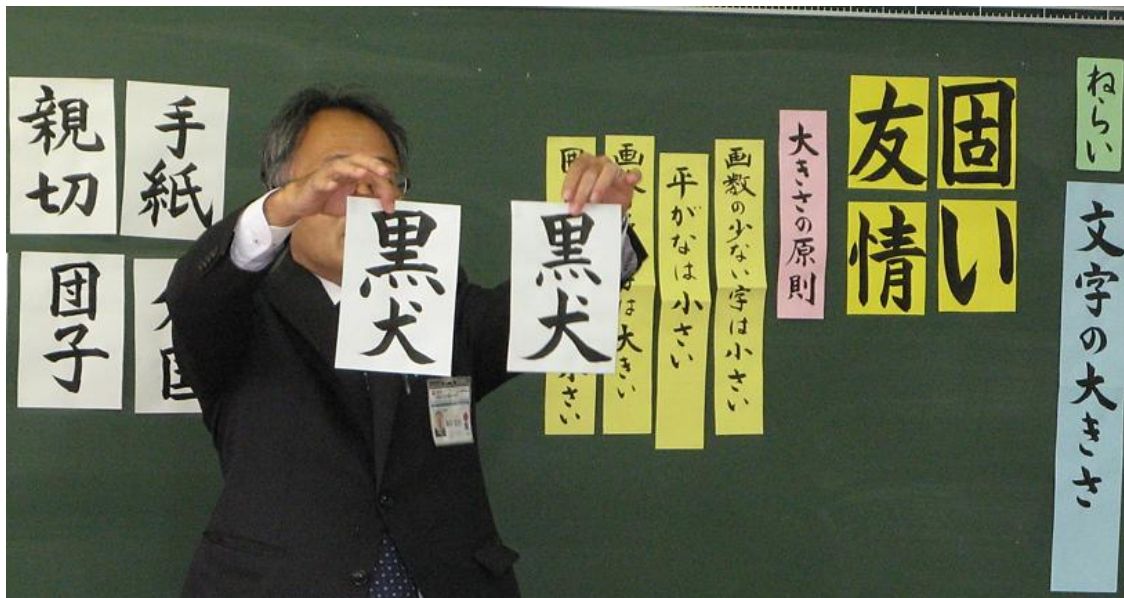 ねらい
文字の大きさ
固い
友情
大きさの原則
画数の少ない字は小さい
平がなは小さい
画 は大きい
さい
黒犬
黒犬
手紙
親切
団子